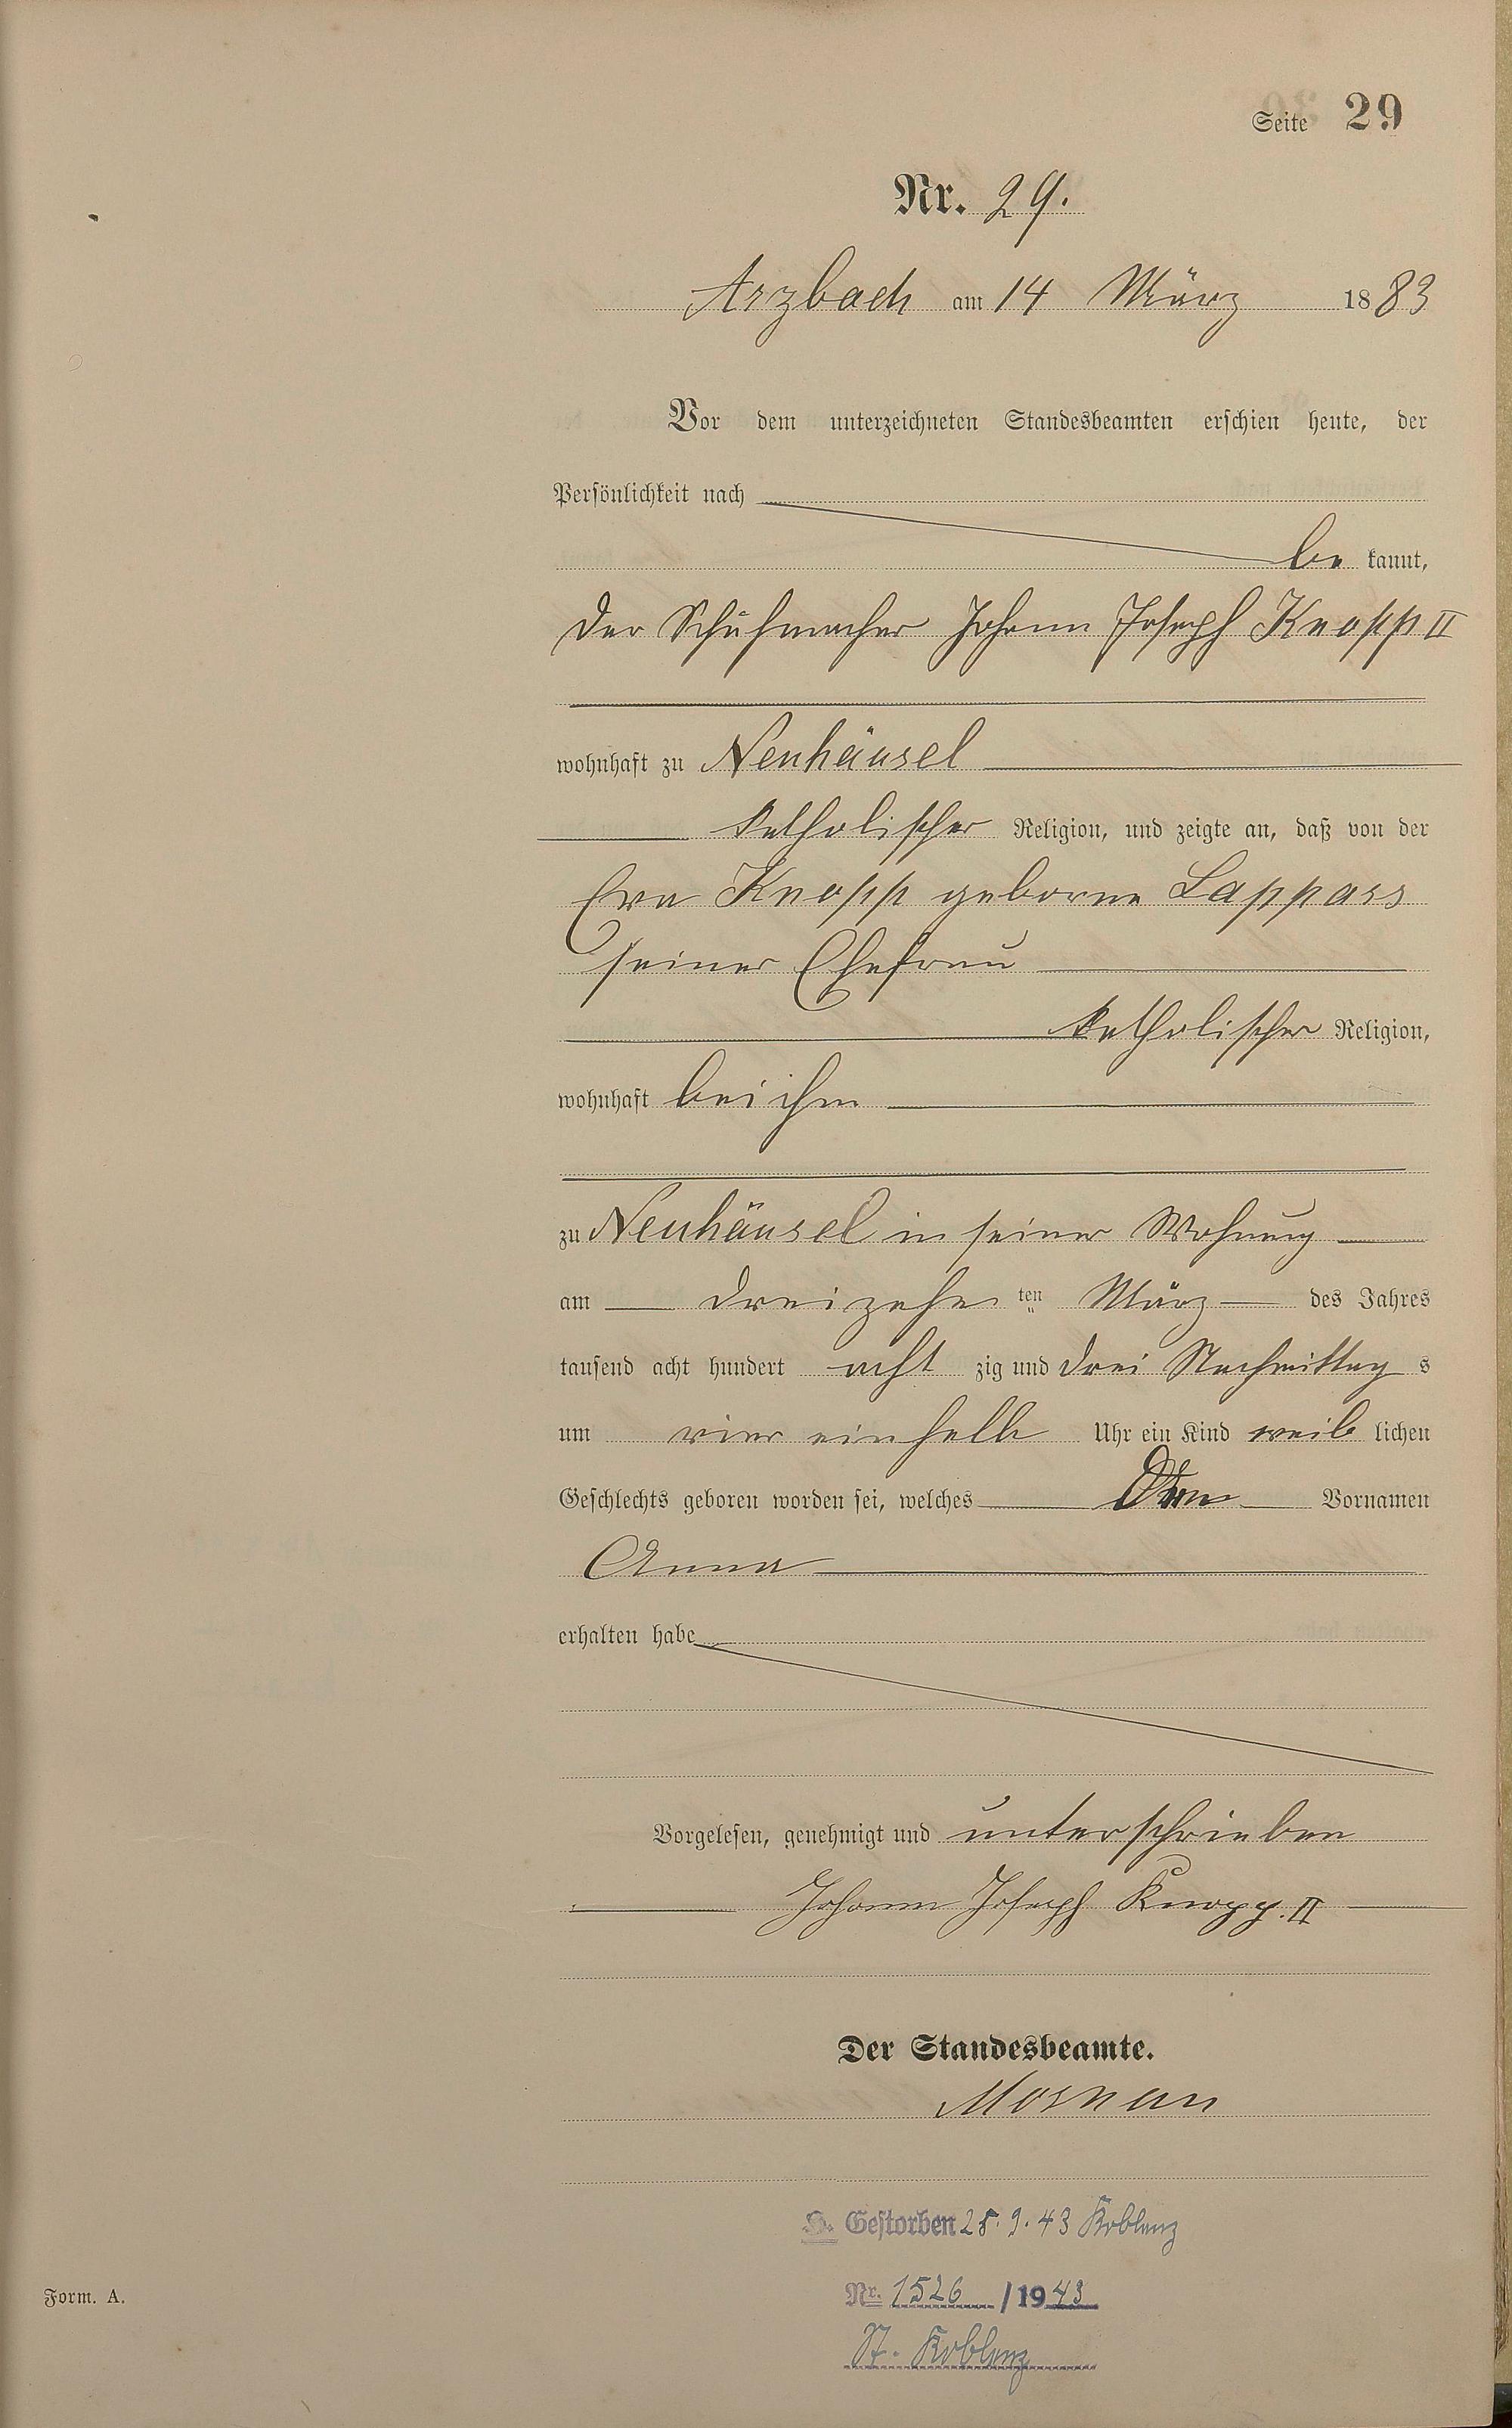 Seite 29
Nr. 29.
Arzbach am 14 März 1883
Vor dem unterzeichneten Standesbeamten erschien heute, der
Persönlichkeit nach
be kannt,
der Schuhmacher Johann Joseph Knopp II
wohnhaft zu Neuhäusel
katholischer Religion, und zeigte an, daß von der
Eva Knopp geborne Lappass
seiner Ehefrau
katholischer Religion,
wohnhaft bei ihm
zu Neuhäusel in seiner Wohnung
am dreizehn ten März des Jahres
tausend acht hundert acht zig und drei Nachmittag s
um vier einhalb Uhr ein Kind weib lichen
Geschlechts geboren worden sei, welches den Vornamen
Anna
erhalten habe
Vorgelesen, genehmigt und unterschrieben
Johann Joseph Knopp. II
Der Standesbeamte.
Gestorben 25.9.43 Koblenz
Nr. 1526 / 1943
St. Koblenz
Form. A.